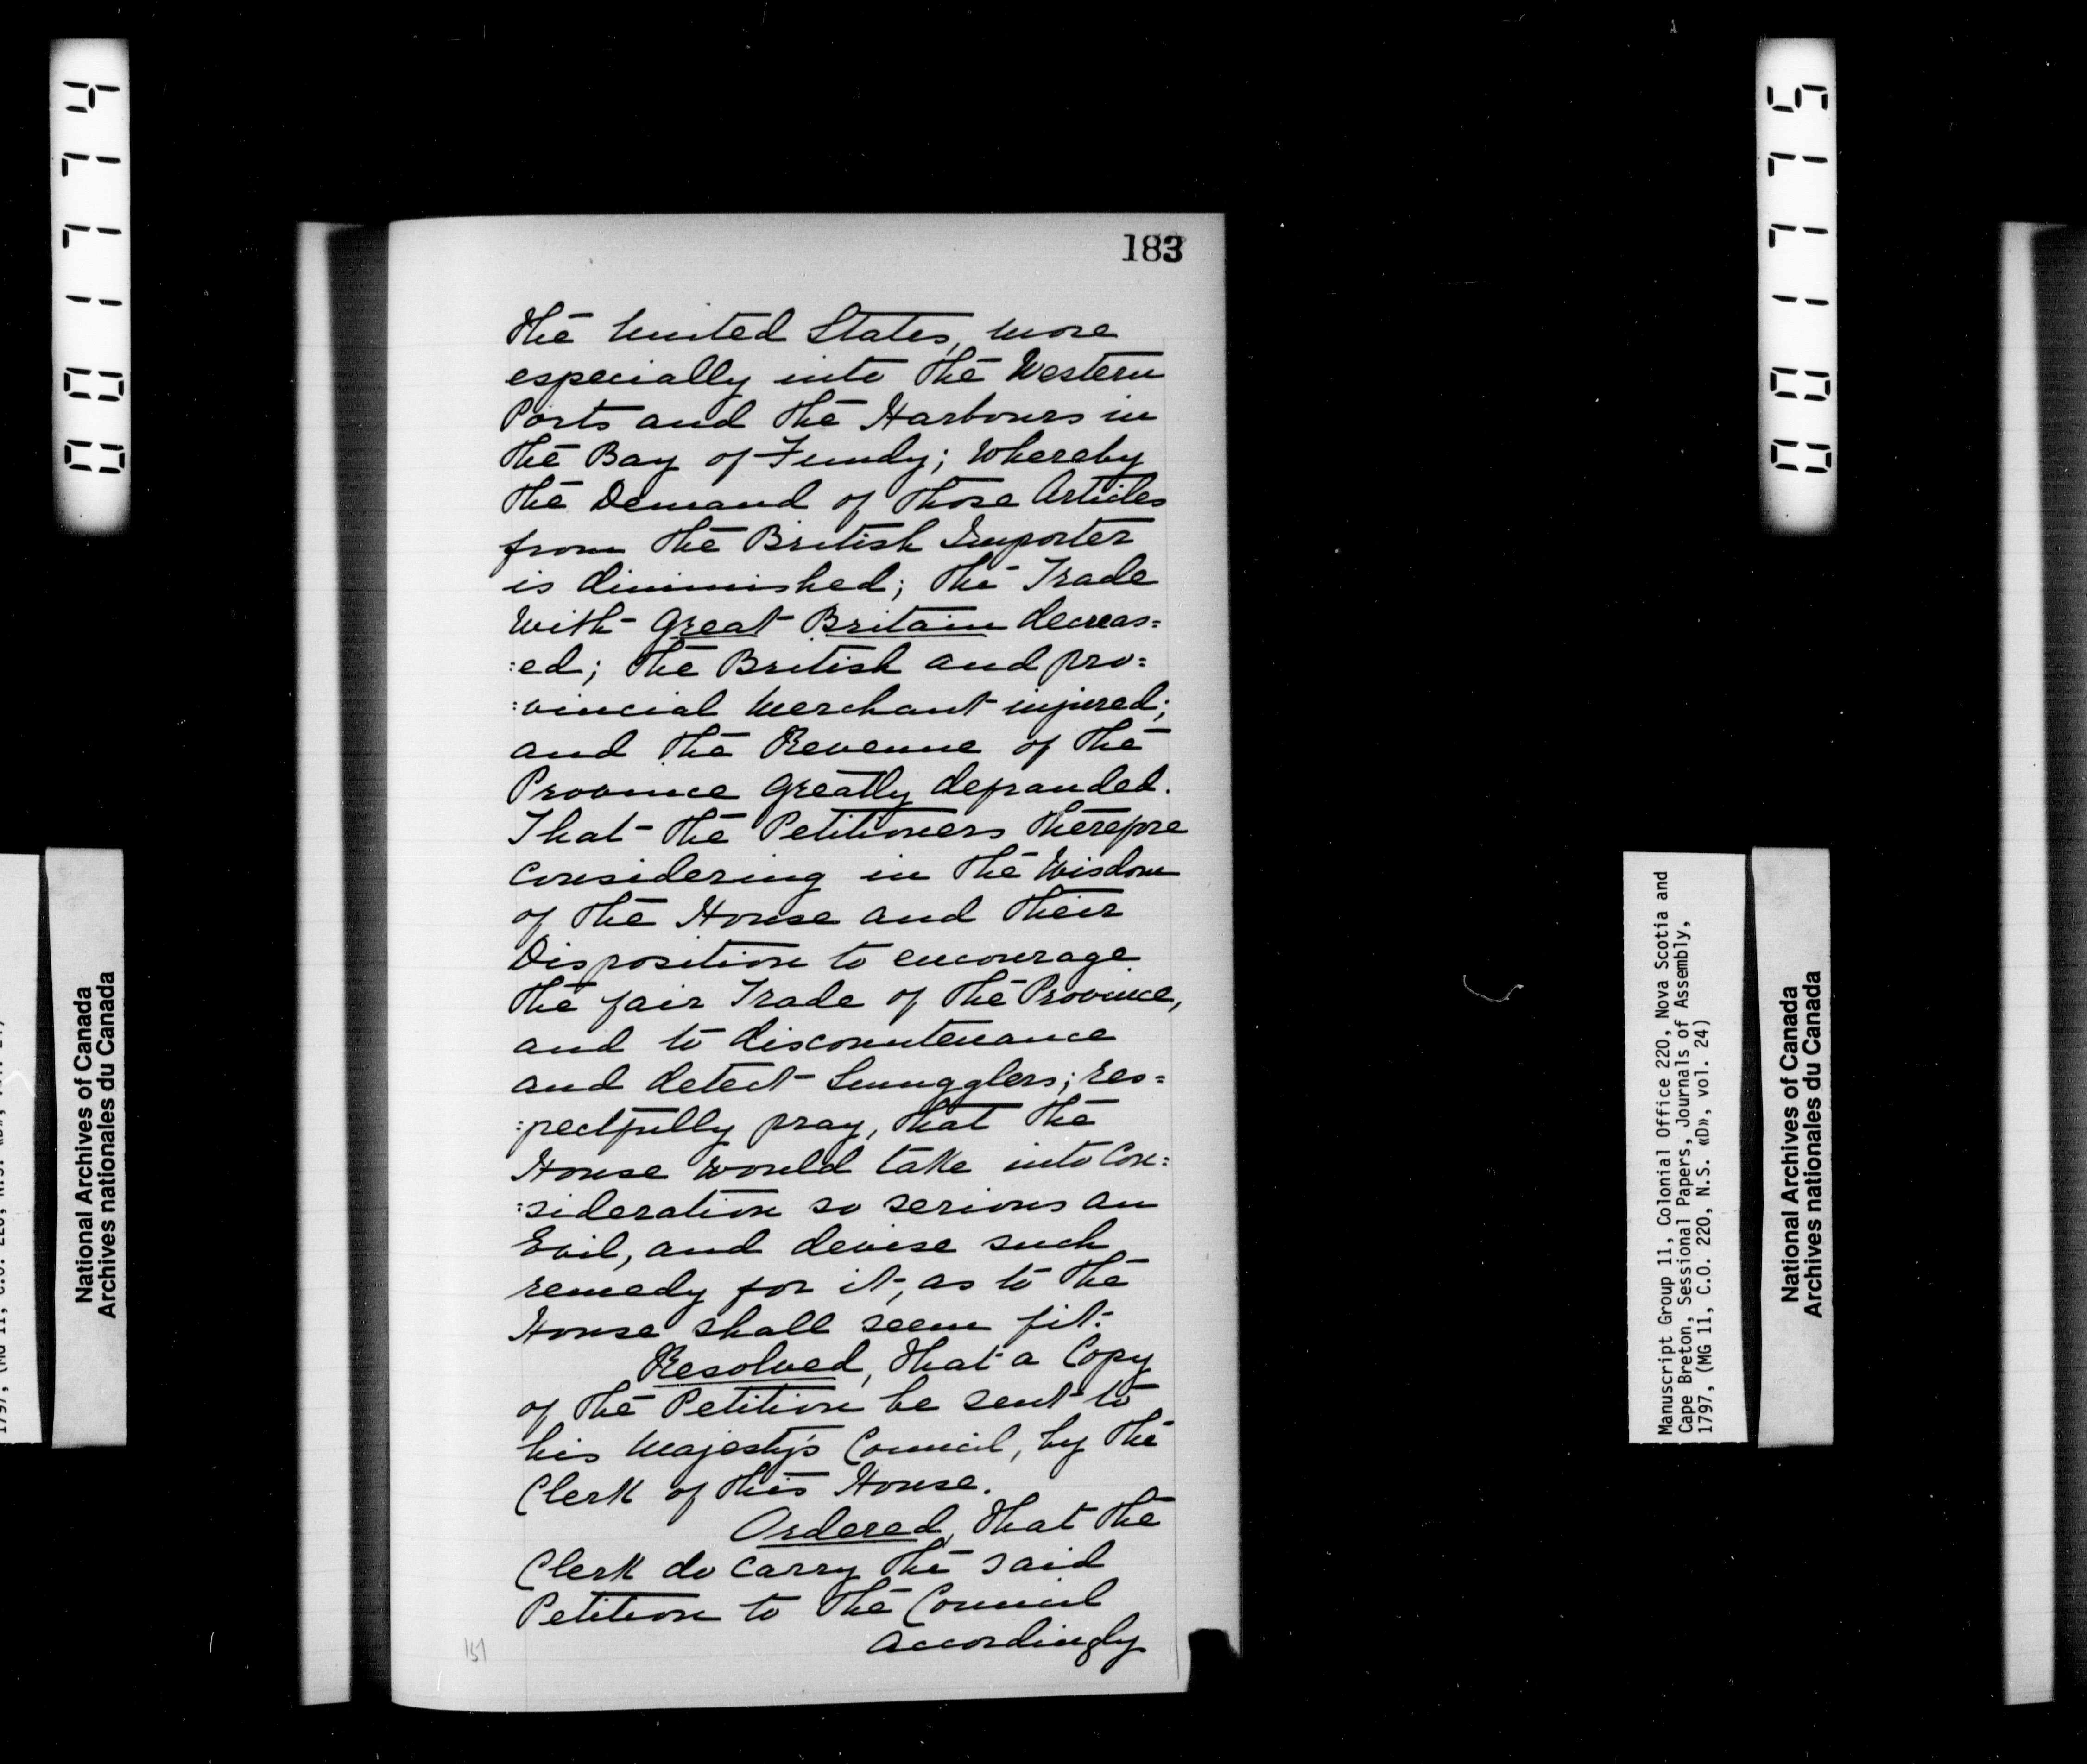 183
the United States, more
especially into the Western
Ports and the Harbours in
the Bay of Fundy; Whereby
the Demand of those Articles
from the British Importer
is diminished; the Trade
With Great Britain decreas=
:ed; the British and pro:
:vincial Merchant injured;
and the Revenue of the
Province greatly defrauded.
That the Petitioners therefore
Considering in the Wisdom
of the House and their
Disposition to encourage
the fair Trade of the Province,
and to discountenance
and detect Smugglers; res=
:pectfully pray, that the
House would take into Con:
:sideration so serious an
Evil, and devise such
remedy for it, as to the
House shall seem fit.
Resolved, that a Copy
of the Petition be sent to
his Majesty's Council, by the
Clerk of this House.
Ordered, that the
Clerk do carry the said
Petition to the Council
accordingly
151
001774
National Archives of Canada
Archives nationales du Canada
001775
Manuscript Group 11, Colonial Office 220, Nova Scotia and
Cape Breton, Sessional Papers, Journals of Assembly,
1797, (MG 11, C.O. 220, N.S. «D», vol. 24)
National Archives of Canada
Archives nationales du Canada